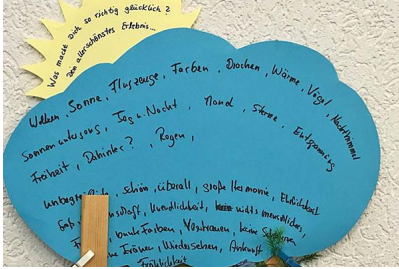 Was macht Dich so richtig glücklich?
Dein allerschönstes Erlebnis...
Wolken, Sonne, Flugzeuge, Farben, Drachen, Wärme, Vögel, Nachthimmel
Sonnenuntergang, Tag u. Nacht, Mond, Sterne, Entspannung
Freiheit, Dahinter?, Regen,
schön, überall, große Harmonie, Ehrlichkeit
Unendlichkeit, nichts menschliches,
bunte Farben, Vertrauen, keine
Träumen, Wiedersehen, Ankunft
Fröhlichkeit